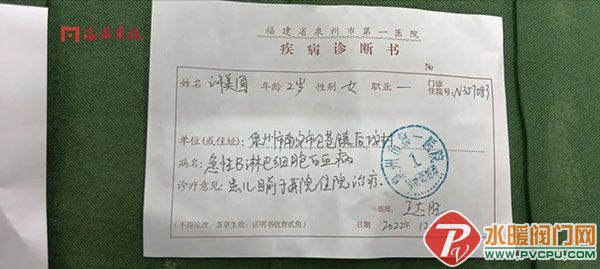 福建省泉州市第一医院
疾病诊断书
No
姓名 许美园 年龄 2岁 性别 女 职业 一 门诊住院号: N357083
单位(或住址): 泉州市南安市仑苍镇后垵村
病名: 急性B淋巴细胞白血病
诊疗意见: 患儿目前于我院住院治疗.
泉州市第一医院
1
医师:
(不得涂改, 盖章生效: 证明书收费贰角) 日期 2022. 12
水暖阀门网
WWW.PVCPU.COM